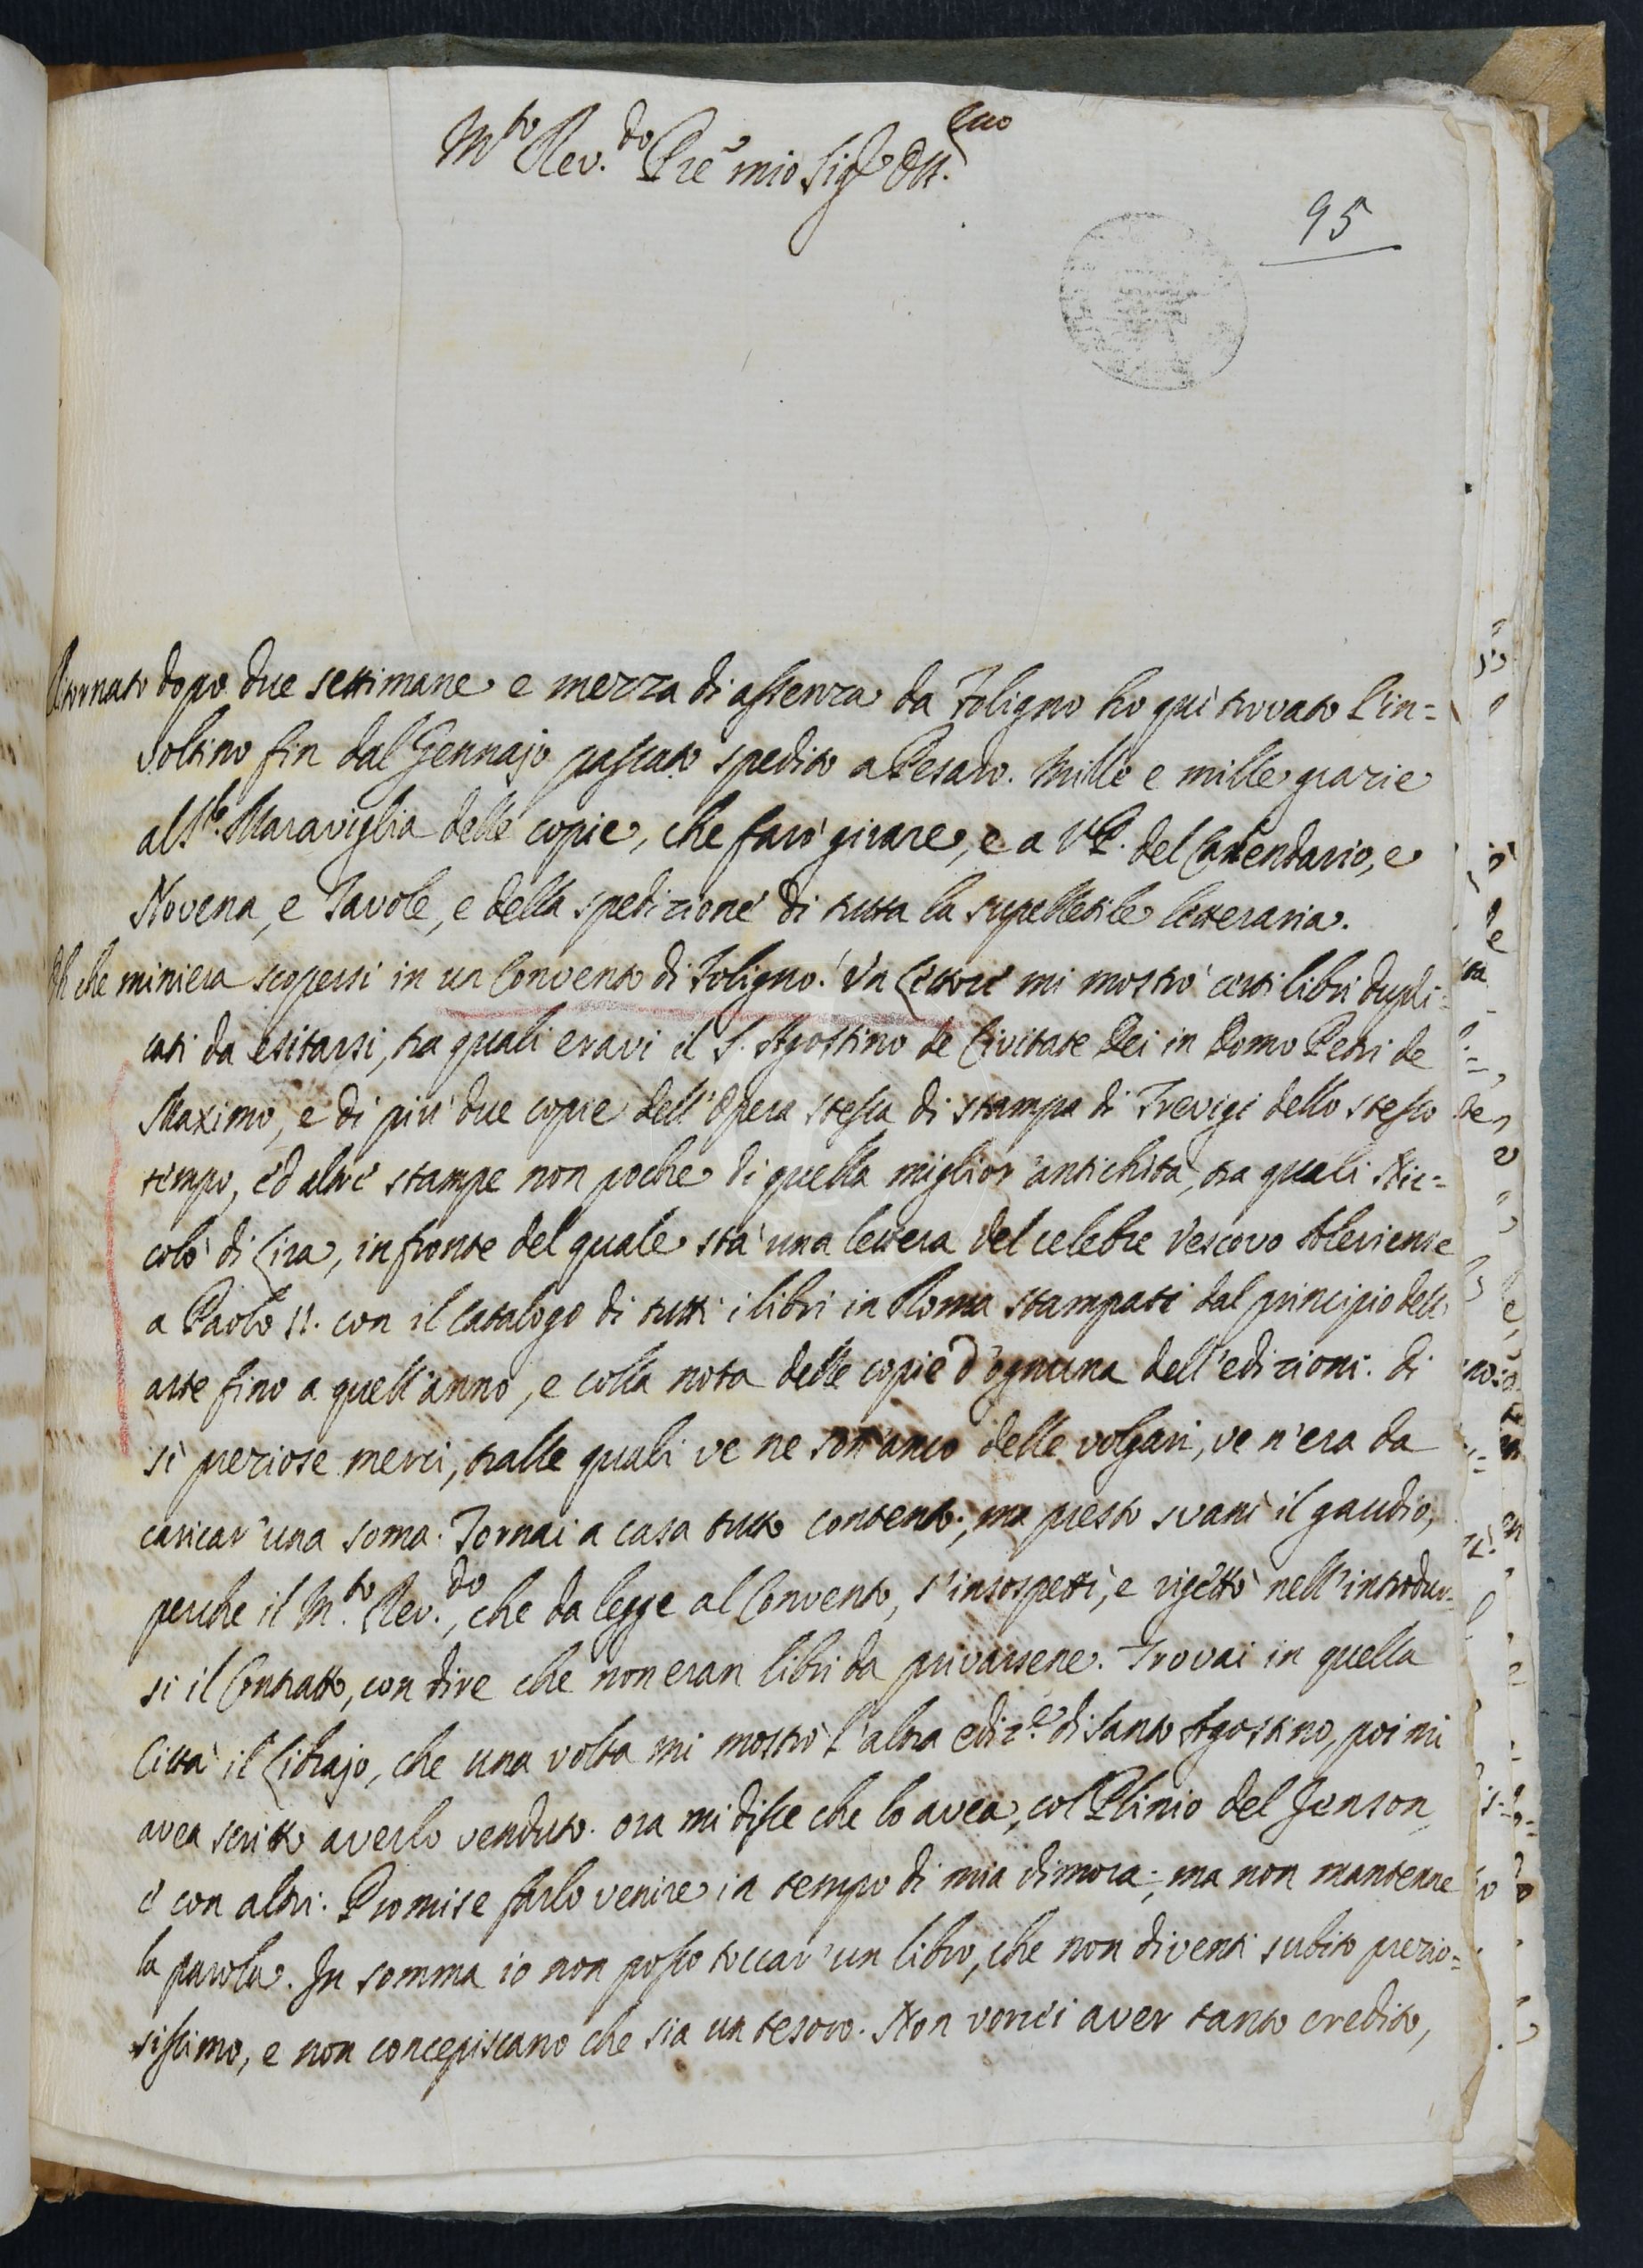 M.to Rev.do Pre mio Sig.e Oss.mo
95
Ritornato dopo due settimane e mezza di assenza da Foligno ho quì trovato l'in=
voltino fin dal Gennajo passato spedito a Pesaro. Mille e mille grazie
al S.r Maraviglia delle copie, che farò girare, e a V.P. del Calendario, e
Novena, e Tavole, e della spedizione di tutta la supelletile letteraria.
Oh che miniera scopersi in un Convento di Foligno! Un Lettore mi mostrò certi libri dupli=
cati da esitarsi, tra quali eravi il S. Agostino de Civitate Dei in Domo Petri de
Maximo, e di più due copie dell'Opera stessa di stampa di Trevigi dello stesso
tempo, ed altre stampe non poche di quella miglior antichità, tra quali Nic=
colò di Lira, in fronte del quale stà una lettera del celebre Vescovo Aleriense
a Paolo II. con il catalogo di tutti i libri in Roma stampati dal principio dell'
arte fino a quell'anno, e colla nota delle copie d'ognuna dell'edizioni. Di
sì preziose merci, tralle quali ve ne son anco delle volgari, ve n'era da
caricar'una soma. Tornai a casa tutto contento; ma presto svanì il gaudio,
perche il M.to Rev.do, che da legge al Convento, s'insospettì, e rigettò nell'introdur=
si il Contratto, con dire che non eran libri da privarsene. Trovai in quella
Città il Librajo, che una volta mi mostrò l'altra ediz.e di Santo Agostino, poi mi
avea scritto averlo venduto. ora mi disse che lo avea, col Plinio del Jenson,
e con altri. Promise farlo venire in tempo di mia dimora; ma non mantenne
la parola. In somma io non posso toccar'un libro, che non diventi subito prezio=
sissimo, e non concepiscano che sia un tesoro. Non vorrei aver tanto credito,